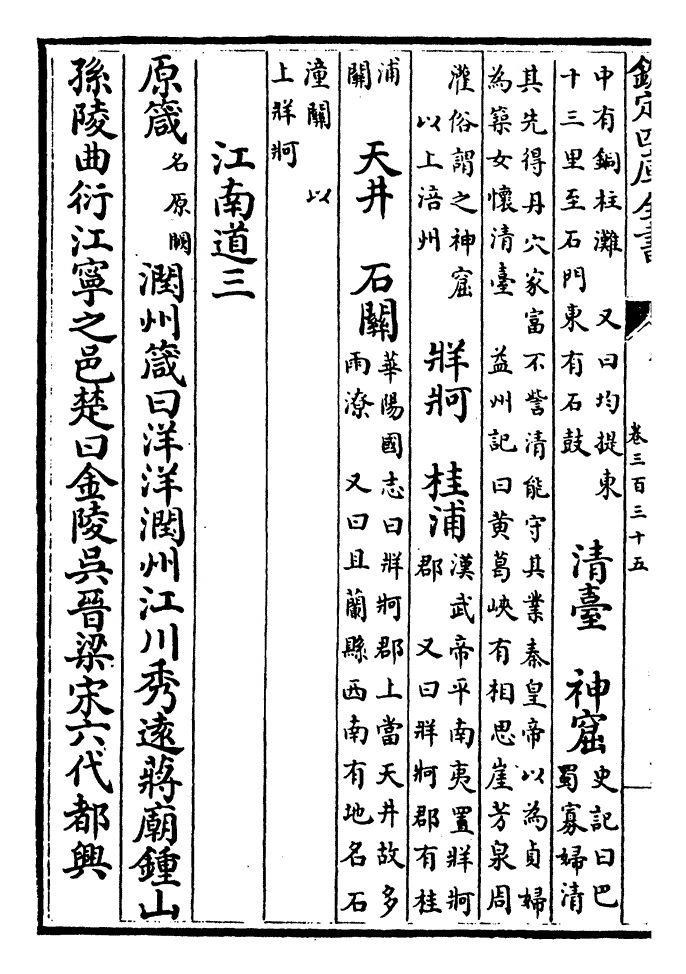 欽定四庫全書 卷三百三十五
中有銅柱灘 又曰均提東
十三里至石門東有石鼓
清臺 神窟
史記曰巴
蜀寡婦清
其先得丹穴家富不訾清能守其業秦皇帝以為貞婦
為築女懷清臺 益州記曰黃葛峽有相思崖芳泉周
灌俗謂之神窟
以上涪州
牂牁 桂浦
漢武帝平南夷置牂牁
郡 又曰牂牁郡有桂
浦
關
天井 石關
華陽國志曰牂牁郡上當天井故多
雨潦 又曰且蘭縣西南有地名石
潼關 以
上牂牁
江南道三
原箴 名原闕 潤州箴曰洋洋潤州江川秀遠蔣廟鍾山
孫陵曲衍江寧之邑楚曰金陵吳晉梁宋六代都興